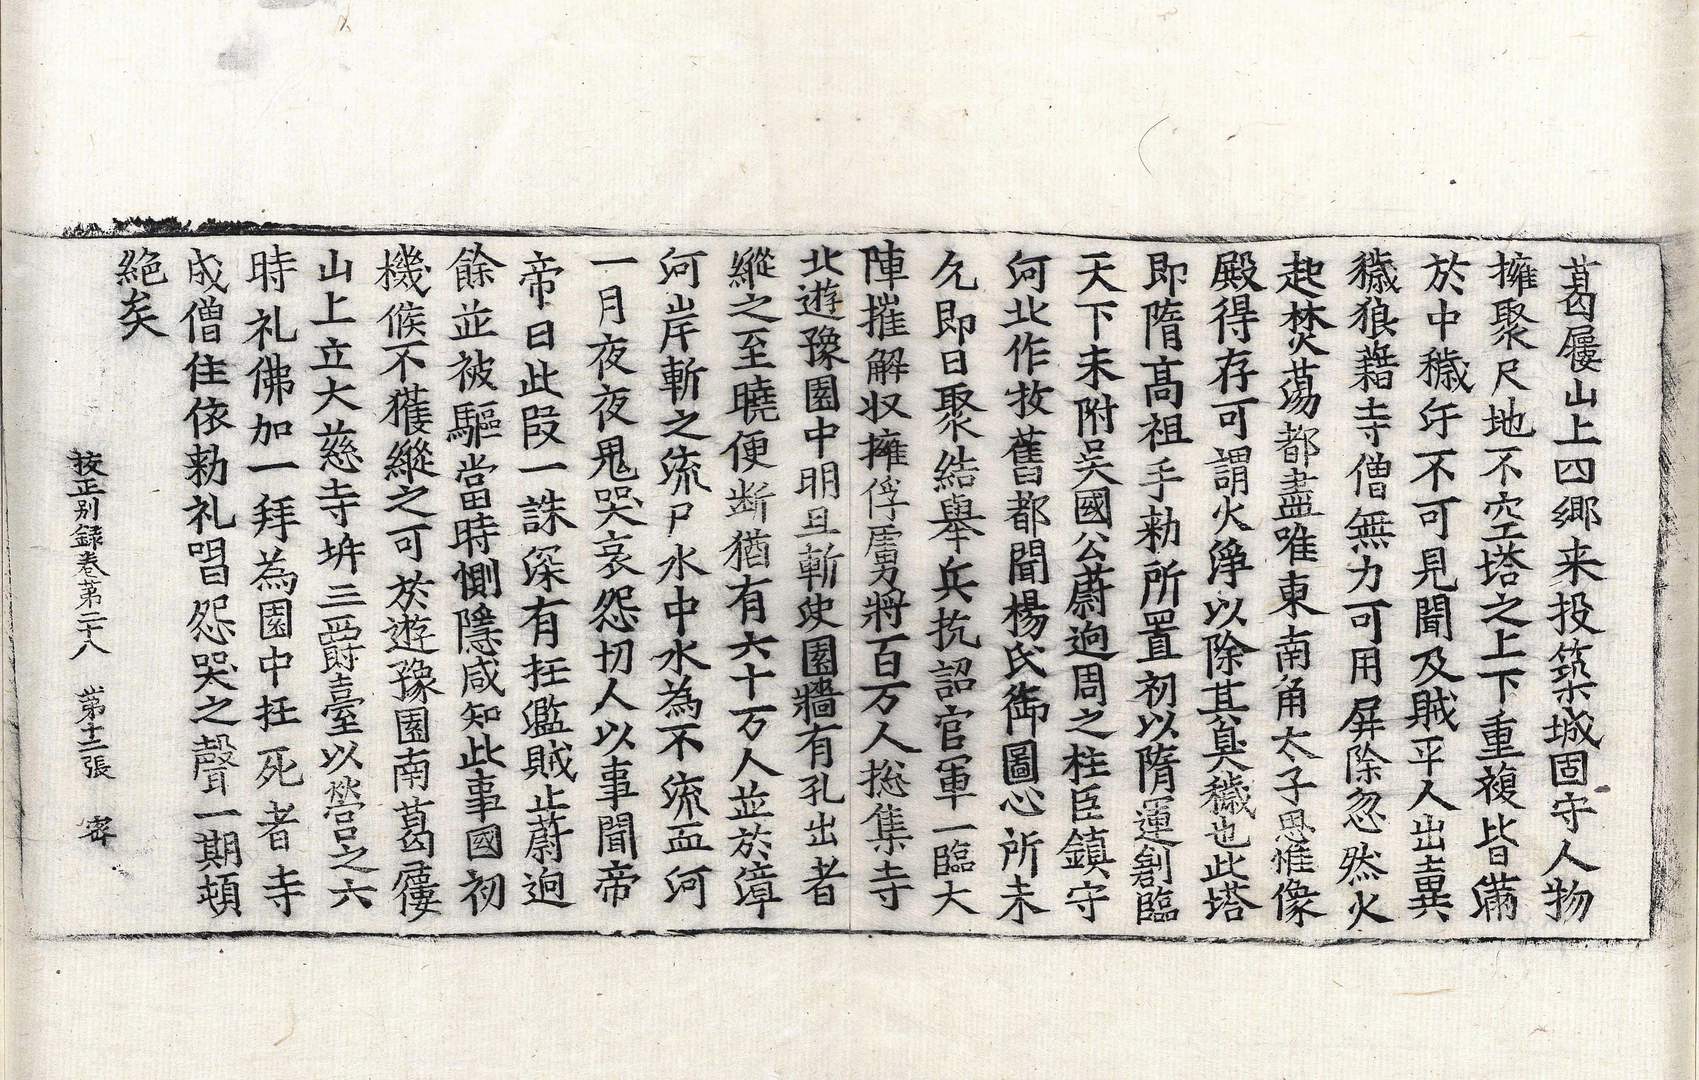 葛屨山上四鄉来投築城固守人物
擁聚尺地不空塔之上下重複皆滿
於中穢汙不可見聞及賊平人出糞
穢狼藉寺僧無力可用屏除忽然火
起焚蕩都盡唯東南角太子思惟像
殿得存可謂火淨以除其臭穢也此塔
即隋高祖手勅所置初以隋運創臨
天下未附吳國公蔚逈周之柱臣鎮守
河北作牧舊都聞楊氏御圖心所未
允即日聚結舉兵抗詔官軍一臨大
陣摧解収擁俘虜將百万人揔集寺
北遊豫園中明旦斬决園牆有孔出者
縱之至曉便断猶有六十万人並於漳
河岸斬之流尸水中水為不流血河
一月夜夜鬼哭哀怨切人以事聞帝
帝曰此段一誅深有抂濫賊止蔚逈
餘並被驅當時惻隱咸知此事國初
機候不獲縱之可於遊豫園南葛屨
山上立大慈寺坼三爵臺以營之六
時礼佛加一拜為園中抂死者寺
成僧住依勅礼唱怨哭之聲一期頓
絶矣
校正别録卷第二十八 第十二張 密